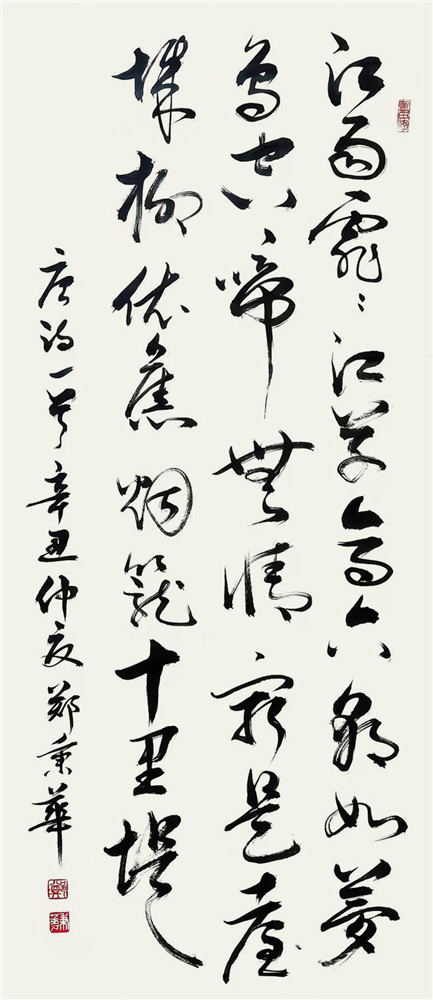 江雨霏〻江草齊六朝如夢
鳥空啼無情最是臺
城柳依舊烟籠十里堤
唐詩一首辛丑仲夏鄭秉華